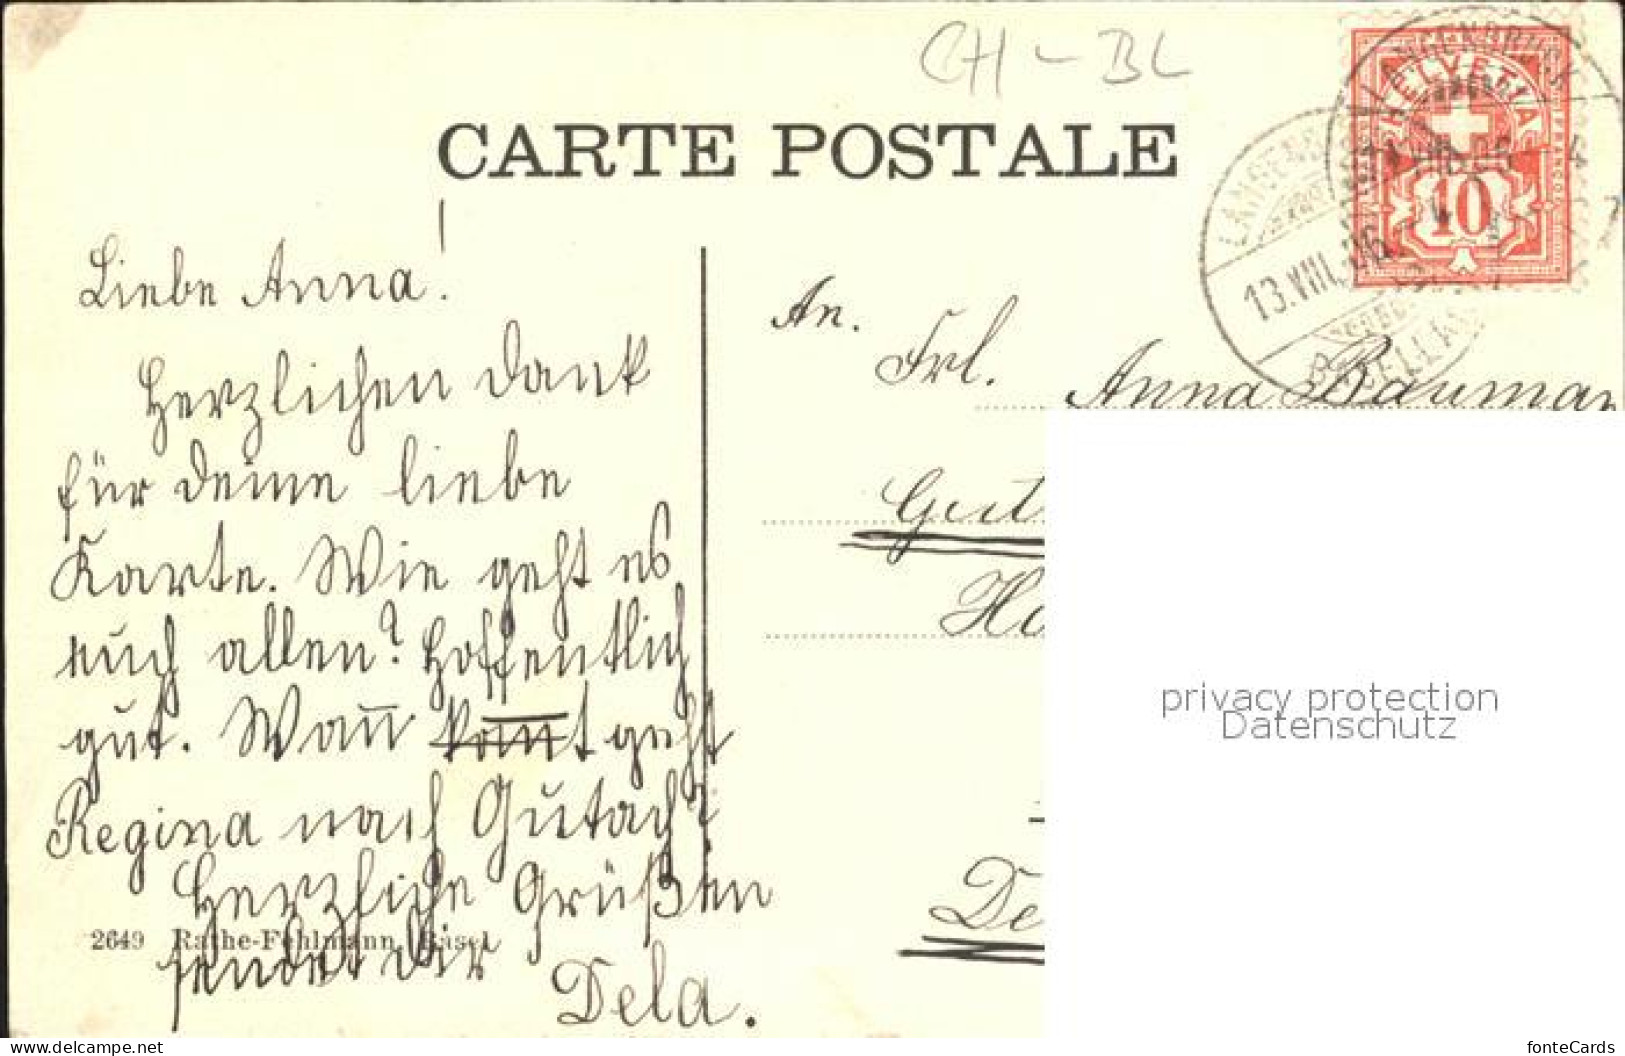 CH - BL
CARTE POSTALE
HELVETIA
FRANCO
10
LANGENBRUCK
13.VIII.06.
Liebe Anna!
Herzlichen Dank
für deine liebe
Karte. Wie geht es
euch allen? Hoffentlich
gut. Wan̄ kom̄t geht
Regina nach Gutach?
Herzliche Grüßen
sendet dir
Dela.
An.
Frl.
Anna Bauman
Gut
Ha
De
2649 Rathe-Fehlmann, Basel
privacy protection
Datenschutz
https://www.delcampe.net
fonteCards